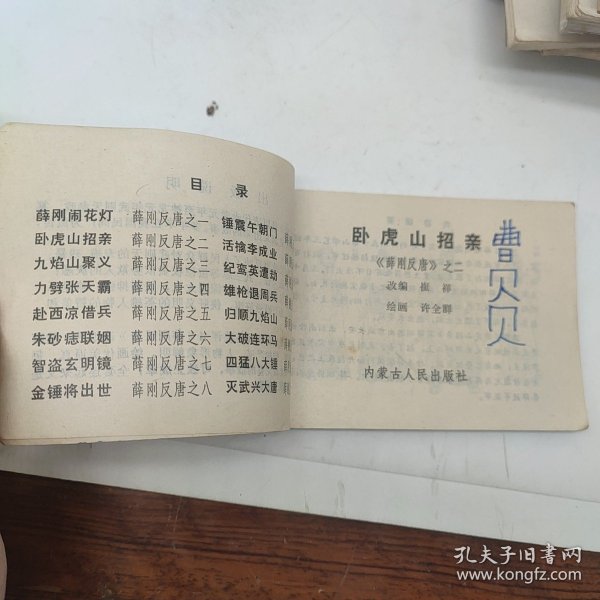 目 录
薛刚闹花灯 薛刚反唐之一 锤震午朝门 薛
卧虎山招亲 薛刚反唐之二 活擒李成业
九焰山聚义 薛刚反唐之三 纪鸾英遭劫
力劈张天霸 薛刚反唐之四 雄枪退周兵
赴西凉借兵 薛刚反唐之五 归顺九焰山
朱砂痣联姻 薛刚反唐之六 大破连环马
智盗玄明镜 薛刚反唐之七 四猛八大锤
金锤将出世 薛刚反唐之八 灭武兴大唐
卧虎山招亲
《薛刚反唐》之二
改编 崔祥
绘画 许全群
内蒙古人民出版社
曹贝贝
孔夫子旧书网
www.kongfz.com